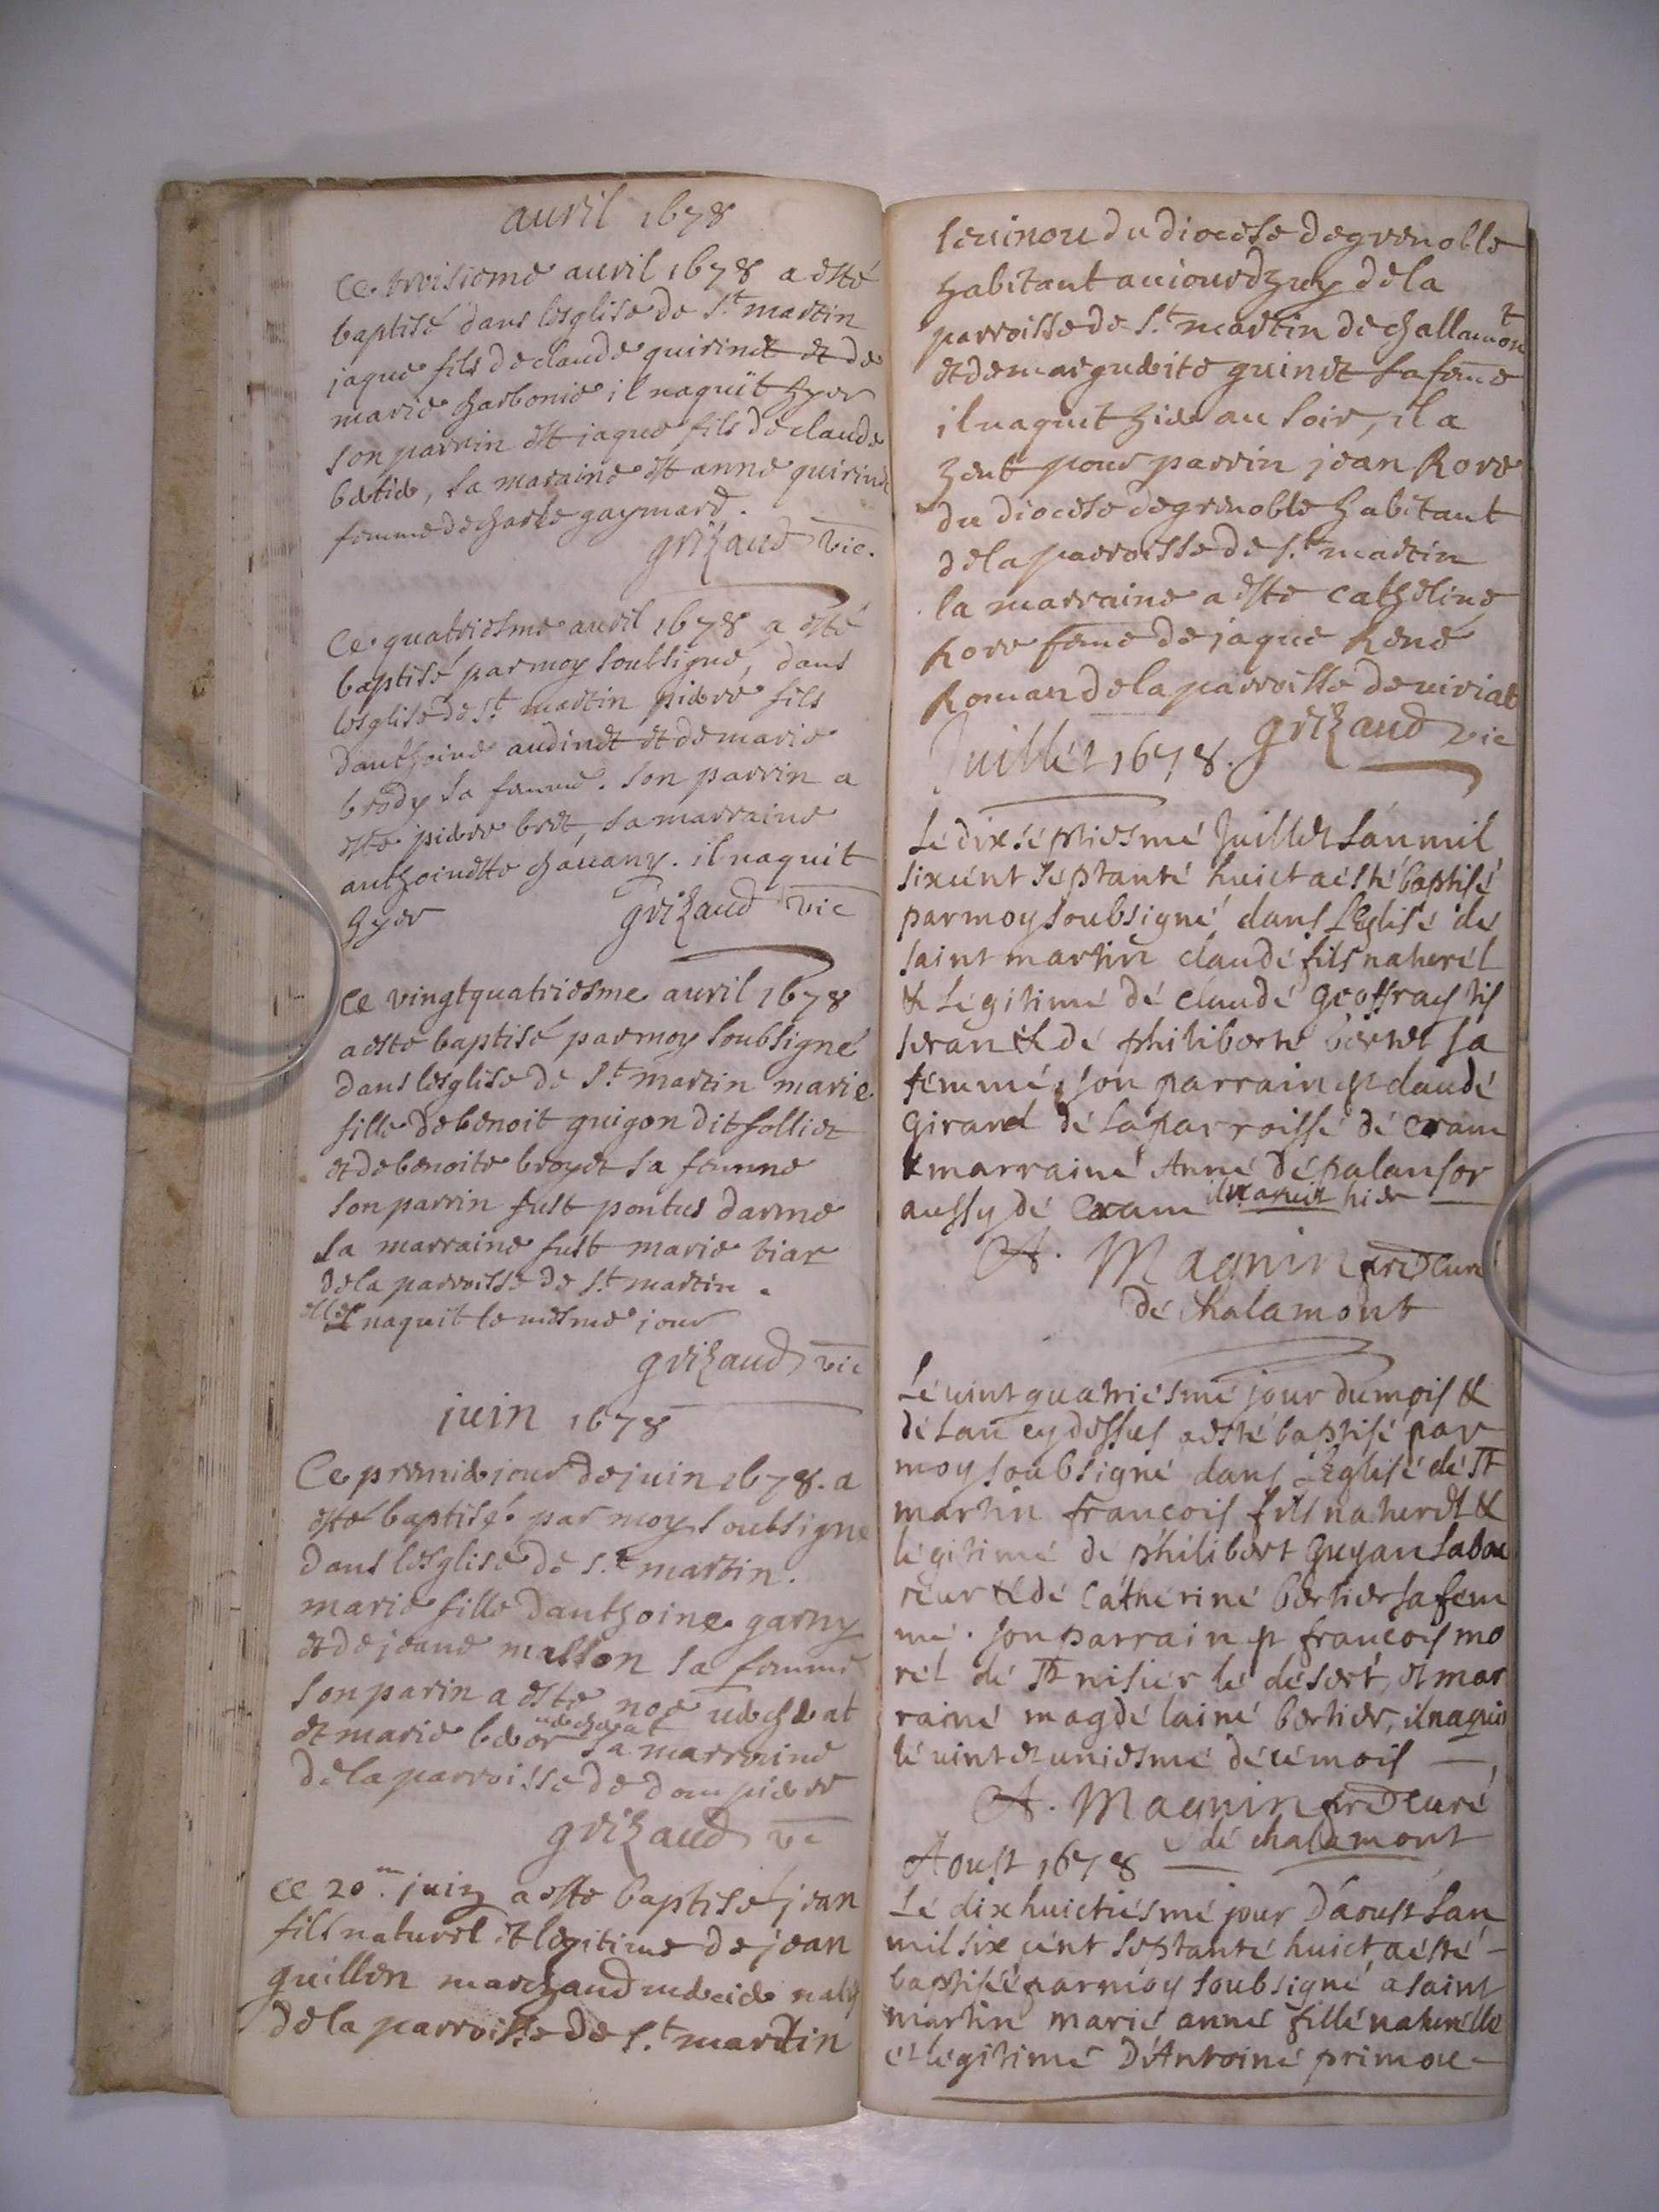 auril 1678
Ce troisieme auril 1678 a esté
baptisé dans lesglise de St martin
jaque fils de claude quirinet et de
marie charbonie il naquit hyer
son parrin est jaque fils de claude
betie, sa maraine est anne quirine
femme de charle gaymard.
grizaud vic.
Ce quatriesme auril 1678 a esté
baptisé par moy soubsigné, dans
lesglise de St martin pierre fils
danthoine audinet et de marie
brody sa femme. son parrin a
este pierre bret, sa marraine
anthoinette chauany. il naquit
hyer grizaud vic
Ce vingtquatriesme auril 1678
a esté baptisé par moy soubsigné
dans lesglise de St martin marie
fille de benoit guigon dit folliet
et de benoite broyet sa femme
son parrin fust pontus darme
sa marraine fust marie biar
de la parroisse de St martin.
elle naquit le mesme jour
grizaud vic
juin 1678
Ce premie jour de juin 1678. a
esté baptisé par moy soubsigne
dans lesglise de St martin.
marie fille danthoine garny
et de jeane masson sa femme
son parin a este noe uecherat
et marie beor uecherat sa marraine
de la parroisse de dompierre
grizaud vic
ce 20m. juin a este baptisé jean
fils naturel et legitime de jean
guillen marchand mercie natif
de la parroisse de St martin
seuinou du diocese de grenoble
habitant auiourdhuy de la
parroisse de St martin de challamont
et de marguerite guinet sa feme
il naquit hier au soir, il a
heut pour parrin jean Rore
du diocese de grenoble habitant
de la parroisse de St martin
la marraine a este catheline
Rore feme de jaque René
Roman de la parroisse de uiriat
grizaud vic
Juillet 1678.
Le dixseptiesme Juillet lan mil
six cent septante huict a esté baptisé
par moy soubsigné dans l'Eglise de
saint martin claude fils naturel
& legitime de claude Geoffray tis
seran & de philiberte bernet sa
femme, son parrain est claude
Girard de la parroisse de Cram
& marraine Anne de palansor
aussy de Cram il naquit hier
A. Magnin pre Curé
de Chalamont
Le uint quatriesme jour du mois &
de lan cy dessus a esté baptisé par
moy soubsigné dans l'Eglise de St
martin francois fils naturel &
legitime de philibert Guyan labou
reur & de Catherine bertier sa fem
me. son parrain est francoys mo
rel de St nisier le desert, et mar
raine magdelaine bertier, il naquit
le uint et uniesme de ce mois
A. Magnin pre Curé
de chalamont
Aoust 1678
Le dix huictiesme jour D'aoust lan
mil six cent septante huict a esté
baptisée par moy soubsigné a saint
martin marie anne fille naturelle
et legitime D'Antoine primoue